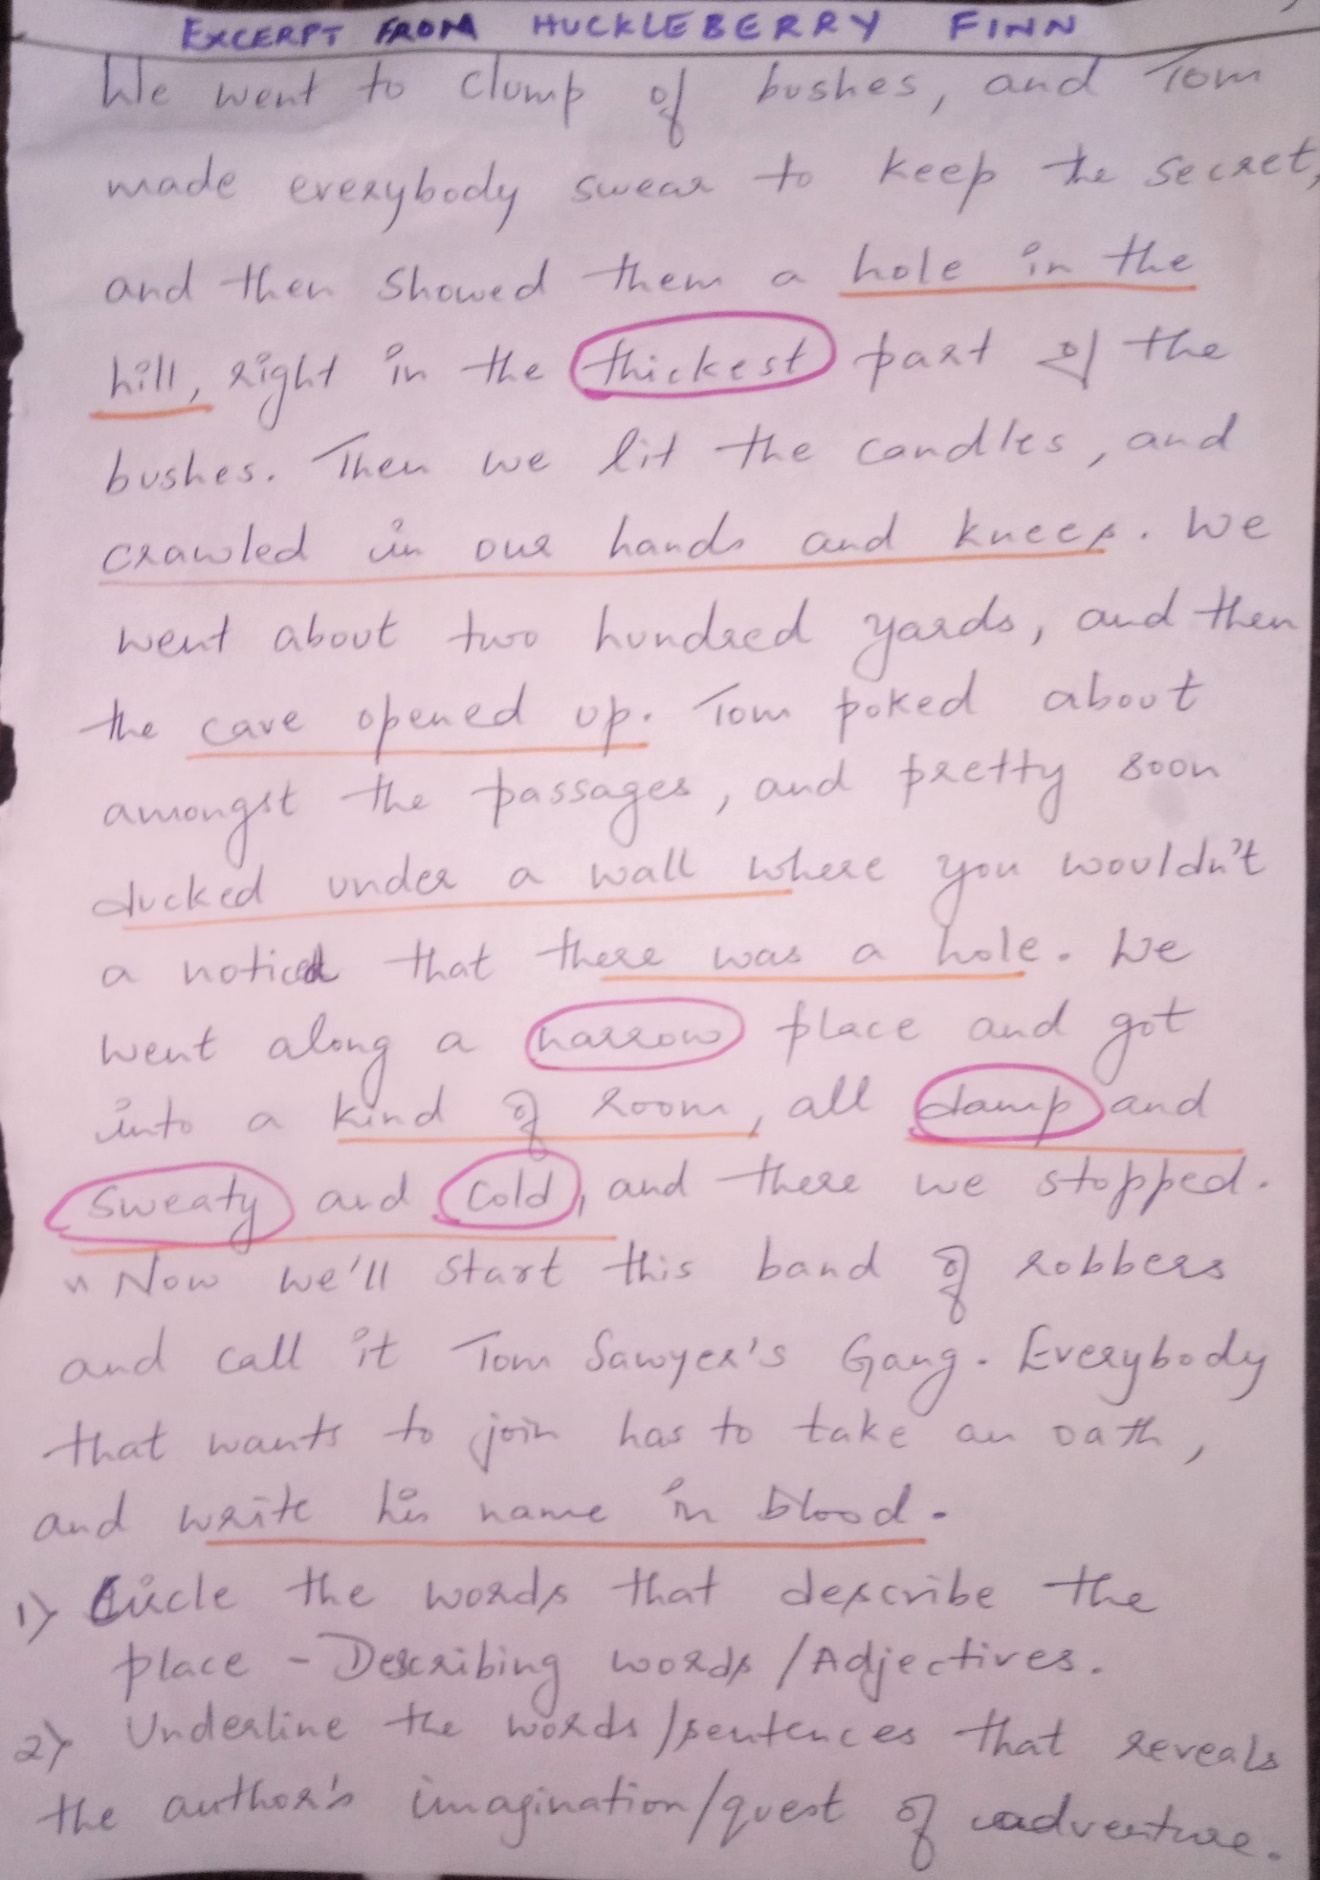 EXCERPT FROM HUCKLEBERRY FINN
We went to clump of bushes, and Tom
made everybody swear to keep the secret,
and then showed them a hole in the
hill, right in the thickest part of the
bushes. Then we lit the candles, and
crawled in our hands and knees. We
went about two hundred yards, and then
the cave opened up. Tom poked about
amongst the passages, and pretty soon
ducked under a wall where you wouldn't
a noticed that there was a hole. We
went along a narrow place and got
into a kind of room, all damp and
sweaty and cold, and there we stopped.
"Now we'll start this band of robbers
and call it Tom Sawyer's Gang. Everybody
that wants to join has to take an oath,
and write his name in blood.
1) Circle the words that describe the
place - Describing words/Adjectives.
2) Underline the words/sentences that reveals
the author's imagination/quest of adventure.